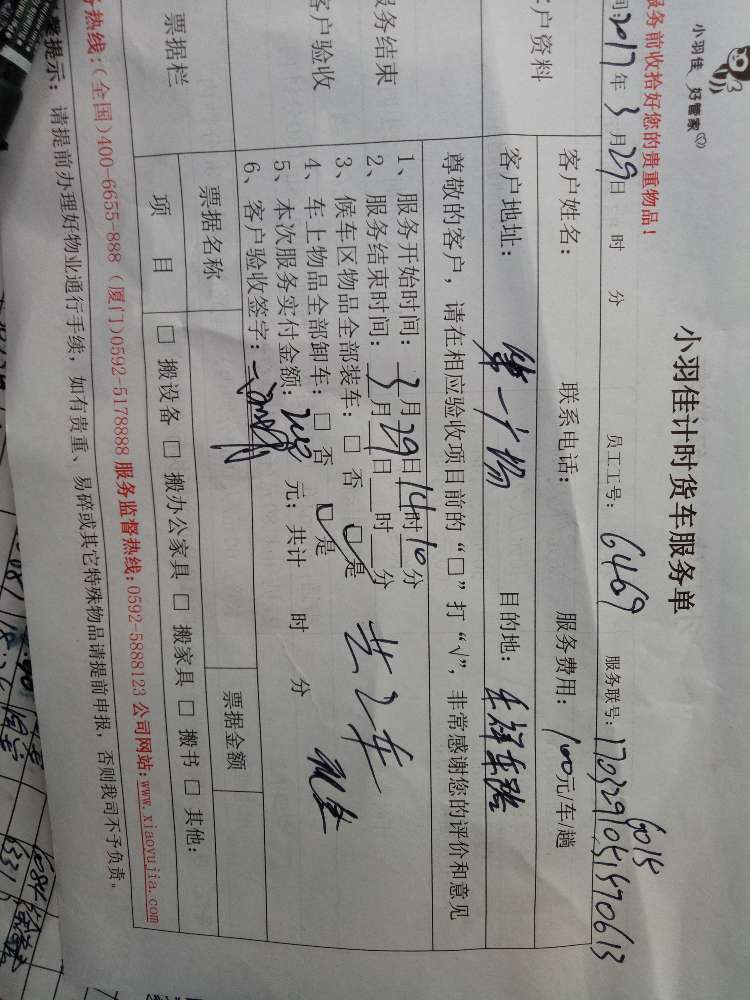 小羽佳 好管家
服务前收拾好您的贵重物品!
小羽佳计时货车服务单
间:2017年3月29日 时 分 员工工号:6469 服务联号:
客户资料
客户姓名: 联系电话: 服务费用:100元/车/趟
客户地址: 第一广场 目的地:
尊敬的客户,请在相应验收项目前的“□”打“√”,非常感谢您的评价和意见
服务结束
客户验收
1、服务开始时间:3月29日14时10分
2、服务结束时间:3月29日 时 分
3、候车区物品全部装车:□否 □是
4、车上物品全部卸车:□否 □是
共2车
5、本次服务实付金额:200元;共计 时 分
现金
6、客户验收签字:
票据栏
票据名称 票据金额
项 目 □ 搬设备 □ 搬办公家具 □ 搬家具 □ 搬书 □ 其他:
务热线:(全国)400-6655-888 (厦门)0592-5178888 服务监督热线:0592-5888123 公司网站:www.xiaoyujia.com
提示:请提前办理好物业通行手续,如有贵重、易碎或其它特殊物品请提前申报,否则我司不予负责。